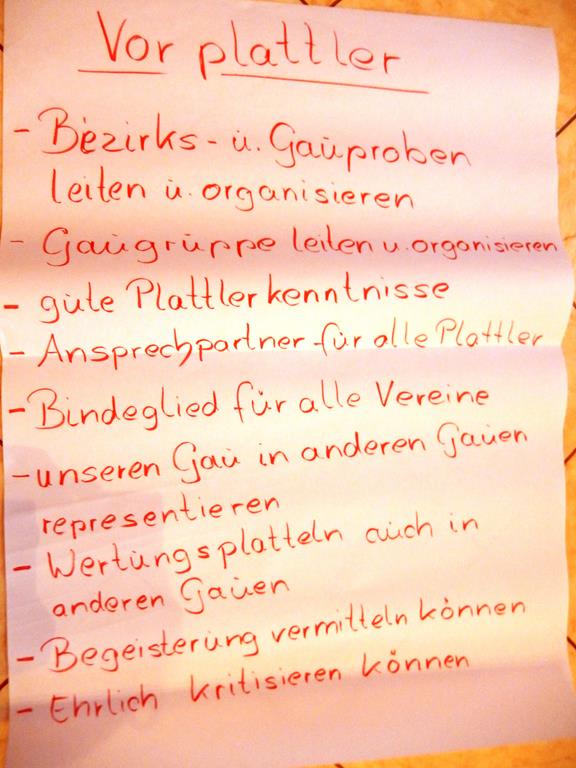 Vorplattler
- Bezirks- u. Gauproben
leiten u. organisieren
- Gaugruppe leiten u. organisieren
- gute Plattlerkenntnisse
- Ansprechpartner für alle Plattler
- Bindeglied für alle Vereine
- unseren Gau in anderen Gauen
representieren
- Wertungsplatteln auch in
anderen Gauen
- Begeisterung vermitteln können
- Ehrlich kritisieren können